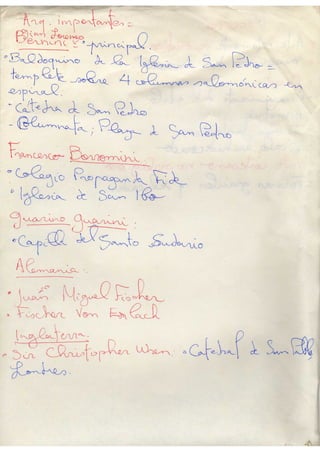 Arq. importantes =
Gian Lorenzo
Bernini: · principal.
· Baldoquino de la Iglesia de San Pedro =
templete sobre 4 columnas salomónicas en
espiral.
· Catedra de San Pedro
- Columnata; Plaza de San Pedro
Francesco Borromini.
· Colegio Propaganda Fide
· Iglesia de San Ibo
Guarino Guarini:
· Capilla del Santo Sudario
Alemania:
· Juan Miguel Fischer
· Fischer Von Erlach
Inglaterra.
- Sir Christopher Wren: · Catedral de San Pablo,
Londres.